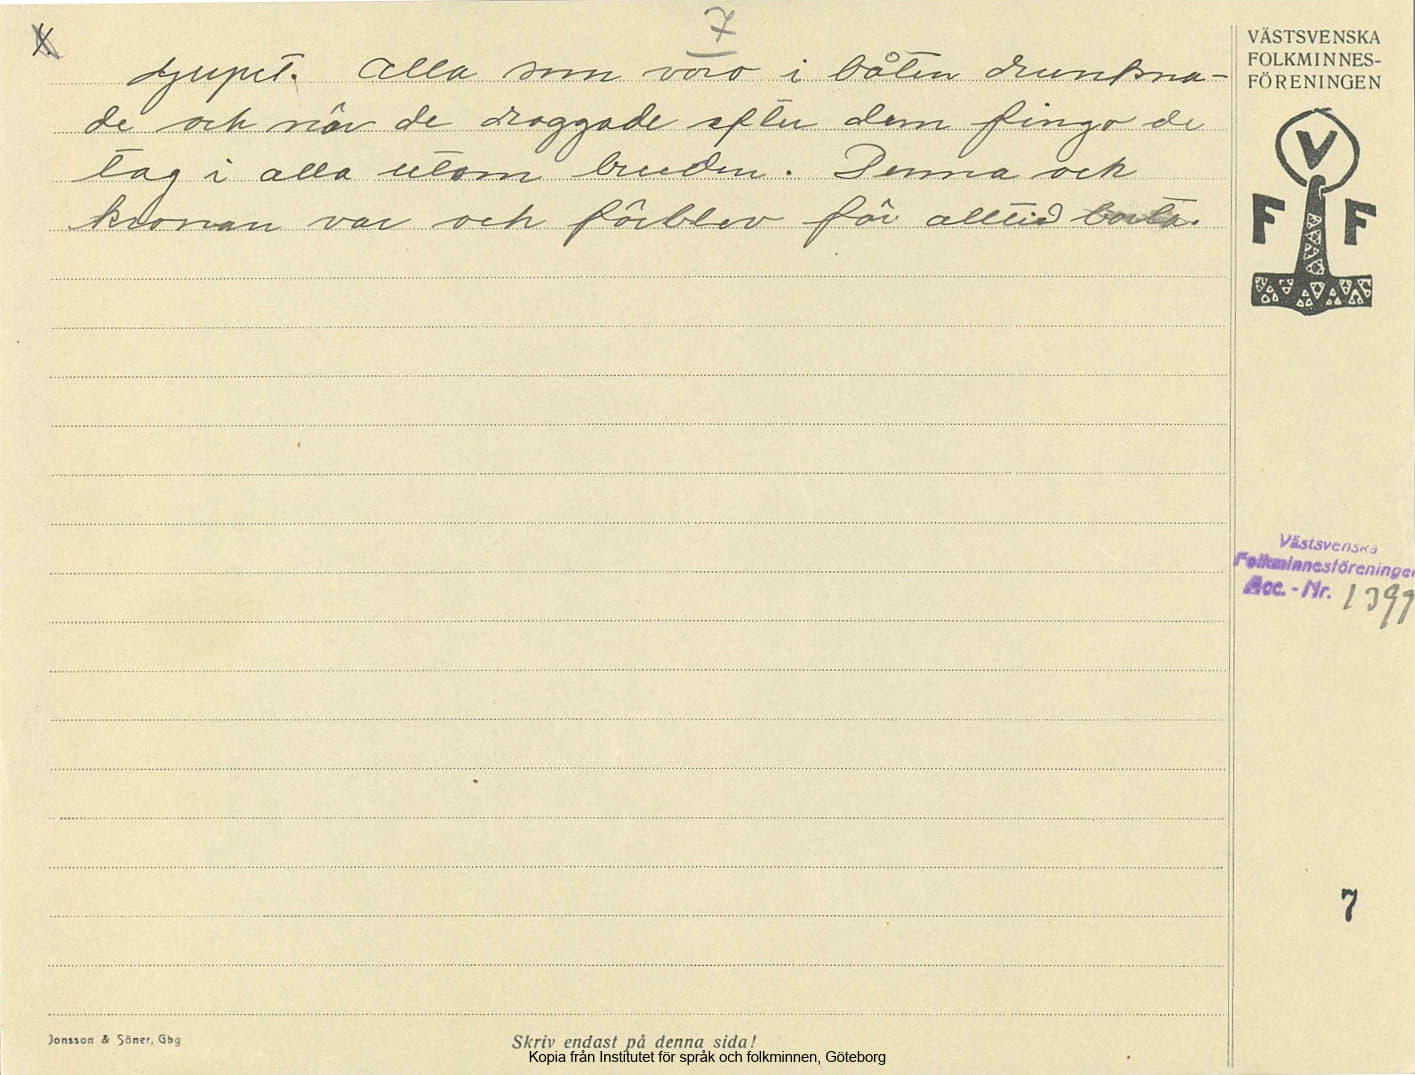 7
djupet. Alla som voro i båten drunkna-
de och når de draggade efter dem fingo de
tag i alla utom bruden. Denna och
kronan var och förblev för alltid borta.
VÄSTSVENSKA
FOLKMINNES-
FÖRENINGEN
V
F F
Västsvenska
Folkminnesföreningen
Acc. - Nr. 1399
7
Jonsson & Söner, Gbg
Skriv endast på denna sida!
Kopia från Institutet för språk och folkminnen, Göteborg